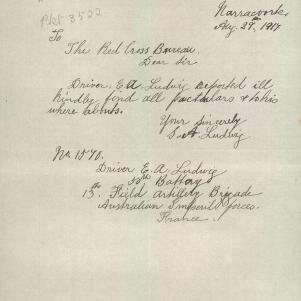 Pkt 3522
Narracoorte
Aug 29th 1917
To
The Red Cross Bureau.
Dear Sir
Driver. E A Ludwig reported ill
kindly find all particulars &
where abouts.
Your Sincerely
Ludwig
No 1570.
Driver E. A Ludwig
50th Battery
13th Field Artillery Brigade
Australian Imperial forces.
France.